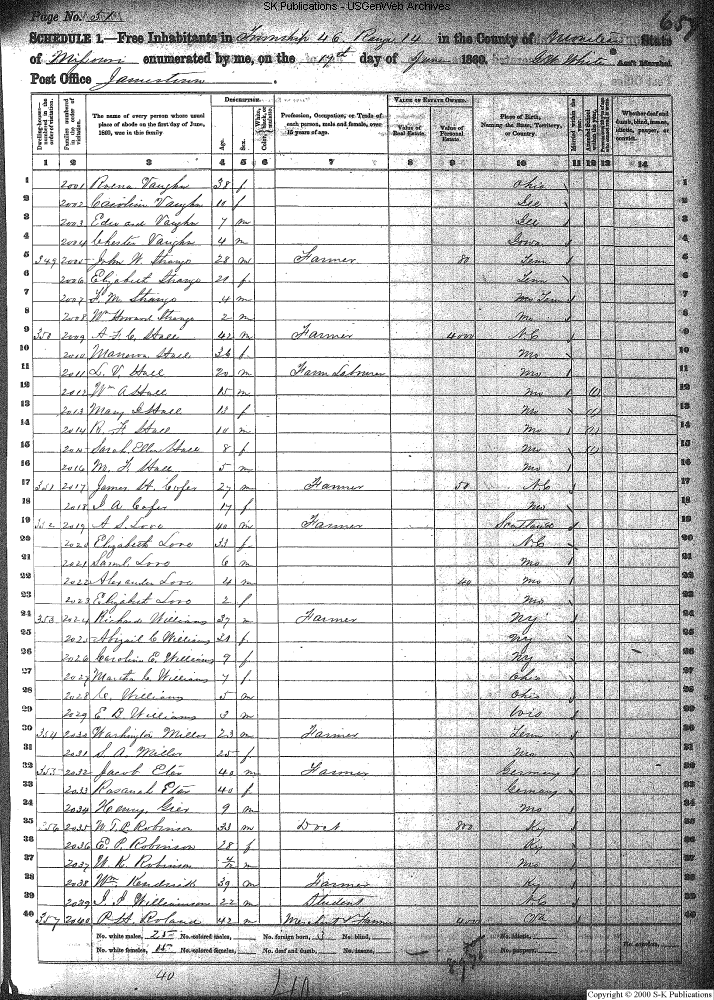 SK Publications - USGenWeb Archives
Page No. 51
657
SCHEDULE 1.—Free Inhabitants in Township 46 Range 14 in the County of State
of Missouri enumerated by me, on the day of June 1860. White Ass't Marshal
Post Office Jamestown.
DESCRIPTION. VALUE OF ESTATE OWNED.
Dwelling-houses—numbered in the order of visitation. Families numbered in the order of visitation. The name of every person whose usual place of abode on the first day of June, 1860, was in this family. Age. Sex. Color, White, black, or mulatto. Profession, Occupation, or Trade of each person, male and female, over 15 years of age. Value of Real Estate. Value of Personal Estate. Place of Birth, Naming the State, Territory, or Country. Married within the year. Attended School within the year. Whether deaf and dumb, blind, insane, idiotic, pauper, or convict.
1 2 3 4 5 6 7 8 9 10 11 12 13 14
1 2001 Vaughn 38 f Ohio 1
2 2002 Caroline Vaughn 10 f Ill 2
3 2003 Vaughn 7 m Ill 3
4 2004 Chester Vaughn 4 m Iowa 4
5 349 2005 John W Strange 28 m Farmer 80 Tenn 5
6 2006 Elizabeth Strange 21 f Tenn 6
7 2007 M Strange 4 m Tenn 7
8 2008 Wm Howard Strange 2 m Mo 8
9 350 2009 A F C Hall 42 m Farmer 4000 N.C 9
10 2010 Manerva Hall 36 f Mo 10
11 2011 L. V. Hall 20 m Farm Laborer Mo 11
12 2012 Wm A Hall 15 m Mo (1) 12
13 2013 Mary Hall 13 f Mo (1) 13
14 2014 R. F Hall 10 m Mo (1) 14
15 2015 Sarah Ellen Hall 8 f Mo (1) 15
16 2016 M. F Hall 5 m Mo 16
17 351 2017 James H. Cofer 27 m Farmer 50 N.C 17
18 2018 A Cofer 17 f Mo 18
19 352 2019 A S. Love 40 m Farmer Scotland 19
20 2020 Elizabeth Love 33 f N.C 20
21 2021 Saml. Love 6 m Mo 21
22 2022 Alexander Love 4 m 40 Mo 22
23 2023 Elizabeth Love 2 f Mo 23
24 353 2024 Richard Williams 37 m Farmer NY 24
25 2025 Abigail C Williams 31 f NY 25
26 2026 Caroline E. Williams 9 f NY 26
27 2027 Martha C Williams 7 f Ohio 27
28 2028 Williams 5 m Ohio 28
29 2029 E B Williams 3 m 29
30 354 2030 Washington Miller 23 m Farmer Tenn 30
31 2031 S. A. Miller 25 f Mo 31
32 355 2032 Jacob Eter 40 m Farmer Germany 32
33 2033 Rosanah Eter 40 f Germany 33
34 2034 Henry Gier 9 m Mo 34
35 356 2035 W. T. P. Robinson 33 m Doct 800 Ky 35
36 2036 E. P. Robinson 28 f Ky 36
37 2037 W. R. Robinson m Mo 37
38 2038 Wm Kendrick 39 m Farmer Ky 38
39 2039 J. J Williamson 22 m Student N.C 39
40 357 2040 P. H. Roland 42 m Va 40
No. white males, 25 No. colored males, No. foreign born, 3 No. blind, No. idiotic,
No. white females, 15 No. colored females, No. deaf and dumb, No. insane, No. paupers, No. convicts,
40
Copyright © 2000 S-K Publications